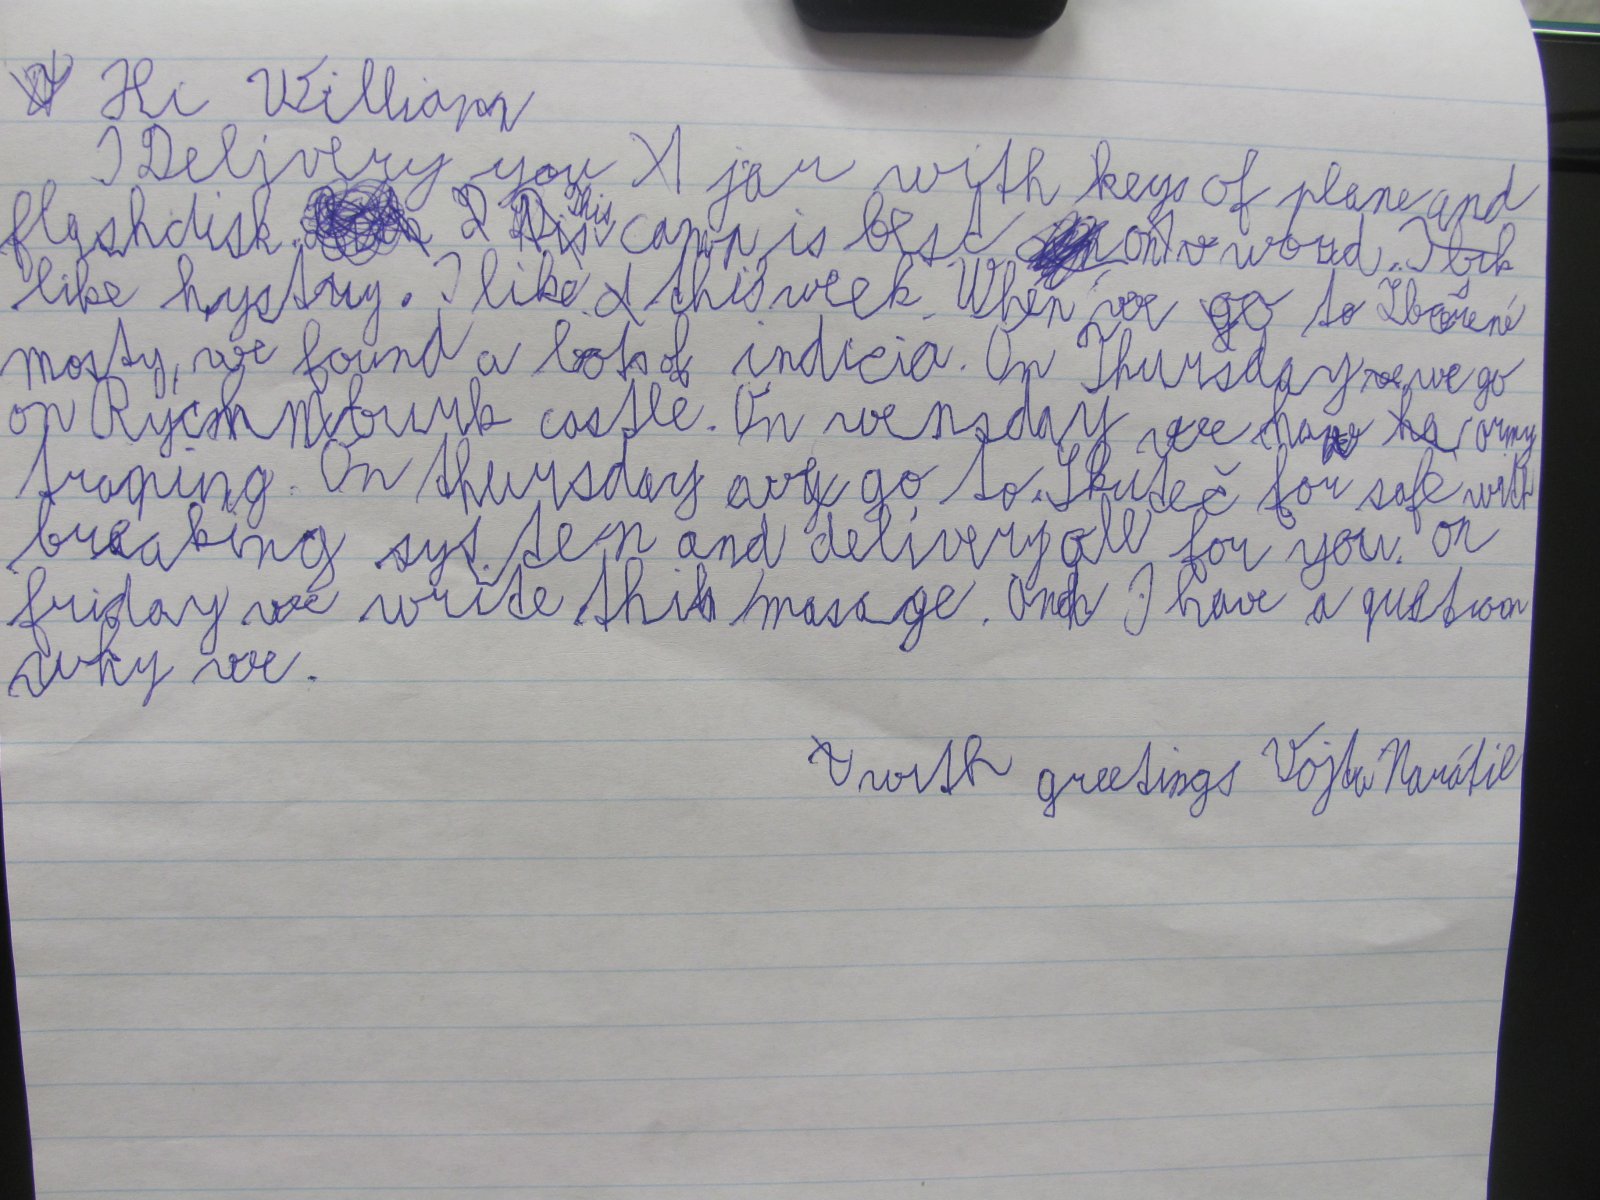 Hi William
I Delivery you A jar with keys of plane and
flashdisk. This camp is best on woud. I
like hystry. I like this week. When we go to Zbořené
mosty, we found a lots of indicia. On Thursday we go
on Rychmburk castle. On wensday we have ha army
traping. On thursday go to Skuteč for safe with
breaking system and delivery all for you. On
friday we write this masage. And I have a qustion
why we.
with greetings Vojta Navrátil